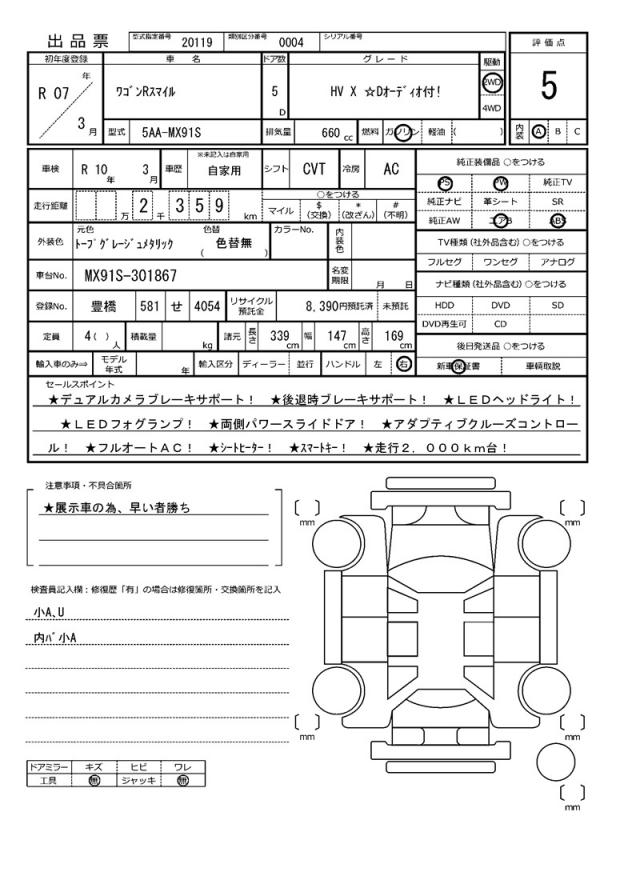 出品票 型式指定番号 20119 類別区分番号 0004 シリアル番号
評価点
5
内装 A B C
初年度登録 車名 ドア数 グレード 駆動
R 07 年 3 月 ワゴンRスマイル 5 D HV X ☆Dオーディオ付! 2WD 4WD
型式 5AA-MX91S 排気量 660 cc 燃料 ガソリン 軽油 ( )
車検 R 10 年 3 月 車歴 ※未記入は自家用 自家用 シフト CVT 冷房 AC
走行距離 万 2 千 359 km ○をつける マイル $(交換) *(改ざん) #(不明)
外装色 元色 トープグレージュメタリック 色替 ( 色替無 ) カラーNo. 内装色
車台No. MX91S-301867 名変期限 月 日
登録No. 豊橋 581 せ 4054 リサイクル預託金 8,390円預託済 未預託
定員 4( )人 積載量 kg 諸元 長さ 339 cm 幅 147 cm 高さ 169 cm
輸入車のみ⇒ モデル年式 年 輸入区分 ディーラー 並行 ハンドル 左 右
純正装備品 ○をつける
PS PW 純正TV
純正ナビ 革シート SR
純正AW エアB ABS
TV種類 (社外品含む) ○をつける
フルセグ ワンセグ アナログ
ナビ種類 (社外品含む) ○をつける
HDD DVD SD
DVD再生可 CD
後日発送品 ○をつける
新車保証書 車輌取説
セールスポイント
★デュアルカメラブレーキサポート! ★後退時ブレーキサポート! ★LEDヘッドライト!
★LEDフォグランプ! ★両側パワースライドドア! ★アダプティブクルーズコントロー
ル! ★フルオートAC! ★シートヒーター! ★スマートキー! ★走行2.000km台!
注意事項・不具合箇所
★展示車の為、早い者勝ち
検査員記入欄:修復歴「有」の場合は修復箇所・交換箇所を記入
小A、U
内バ小A
ドアミラー キズ ヒビ ワレ
工具 無 ジャッキ 無
〔 〕 mm
〔 〕 mm
〔 〕 mm
〔 〕 mm
〔 〕 mm